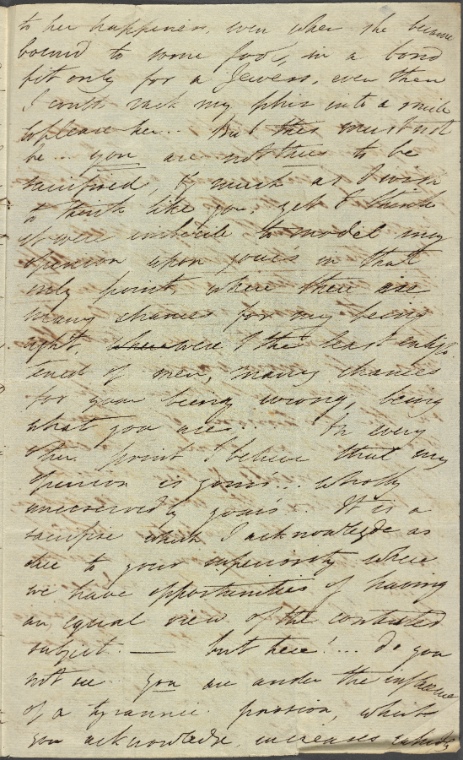 to her happiness, even when she became
bound to some fool, in a bond
fit only for a Jewess, even then
I could rack my phiz into a smile
to please her... But this must not
be... you are not thus to be
sacrificed, & much as I wish
to think like you, yet I think
it were imbecile to model my
opinion upon yours in that
only point, where there are
many chances for my being
right, were I the least enligh
ened of men, many chances
for your being wrong, being
what you are. In every
other point I believe that my
opinion is yours... wholly
unreservedly yours. It is a
sacrifise which I acknowledge as
due to your superiority where
we have opportunities of having
an equal view of the contested
subject. — but here!... do you
not see. you are under the influence
of a tyrannic passion, which
you acknowledge, increases